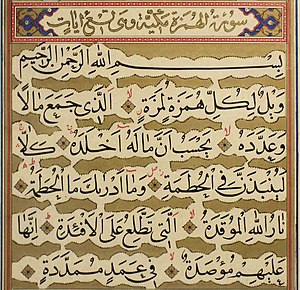 سورة الهمزة مكية وهي تسع آيات
بِسْمِ اللَّهِ الرَّحْمَٰنِ الرَّحِيمِ
وَيْلٌ لِكُلِّ هُمَزَةٍ لُمَزَةٍ لا الَّذِي جَمَعَ مَالًا
وَعَدَّدَهُ لا يَحْسَبُ أَنَّ مَالَهُ أَخْلَدَهُ كَلَّا
لَيُنْبَذَنَّ فِي الْحُطَمَةِ وَمَا أَدْرَاكَ مَا الْحُطَمَةُ
نَارُ اللَّهِ الْمُوقَدَةُ لا الَّتِي تَطَّلِعُ عَلَى الْأَفْئِدَةِ ط إِنَّهَا
عَلَيْهِمْ مُؤْصَدَةٌ لا فِي عَمَدٍ مُمَدَّدَةٍ